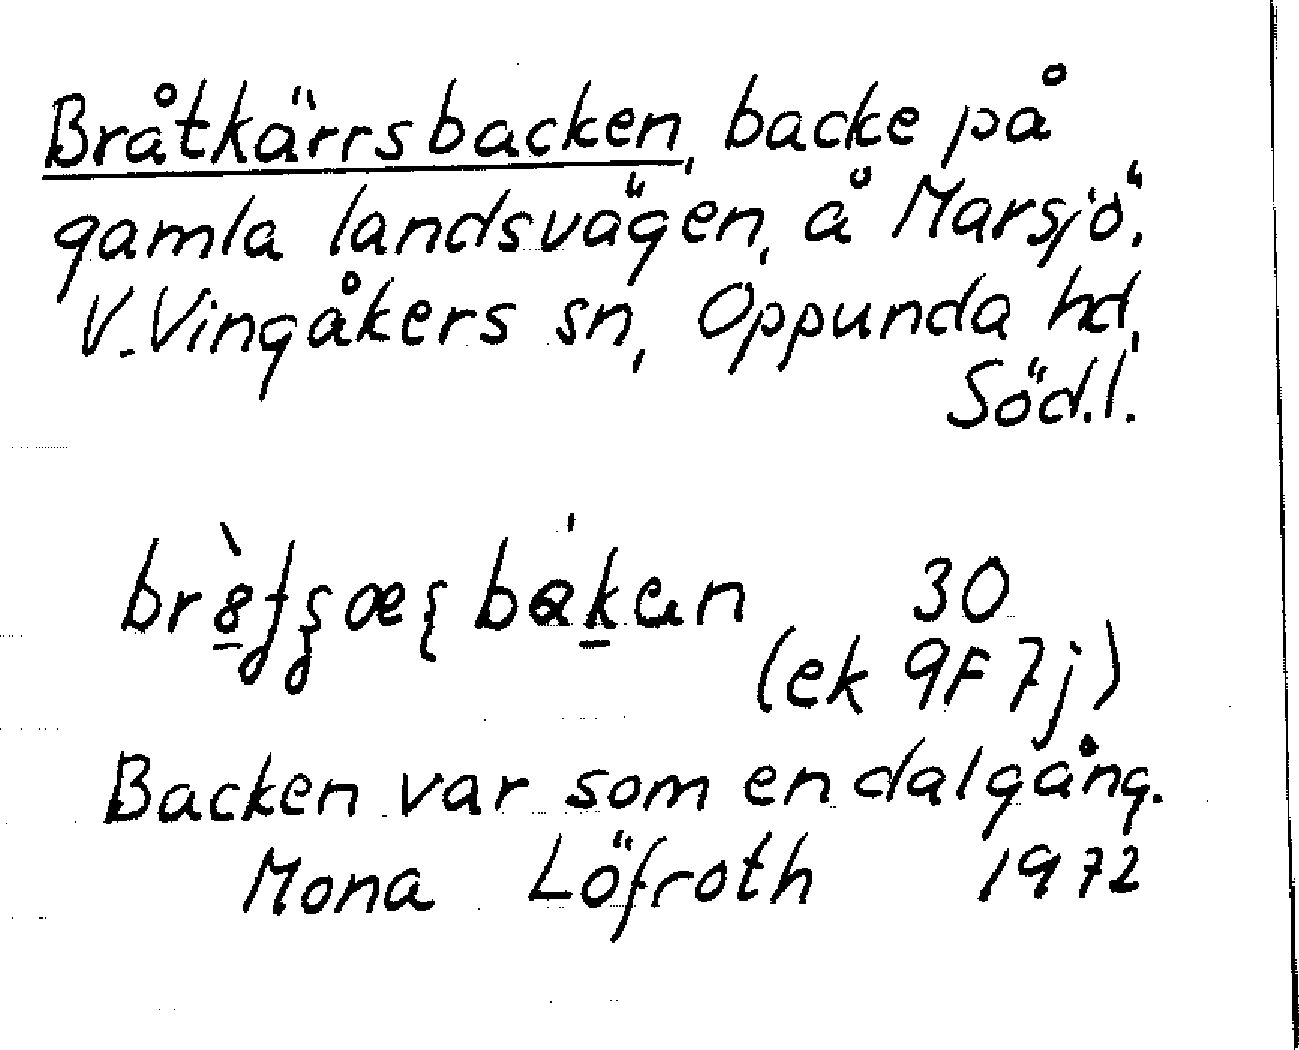 Bråtkärrsbacken, backe på
gamla landsvägen, å Marsjö,
V. Vingåkers sn, Oppunda hd,
Söd.l.
30
(ek 9F 7j)
Backen var som en dalgång.
Mona Löfroth 1972